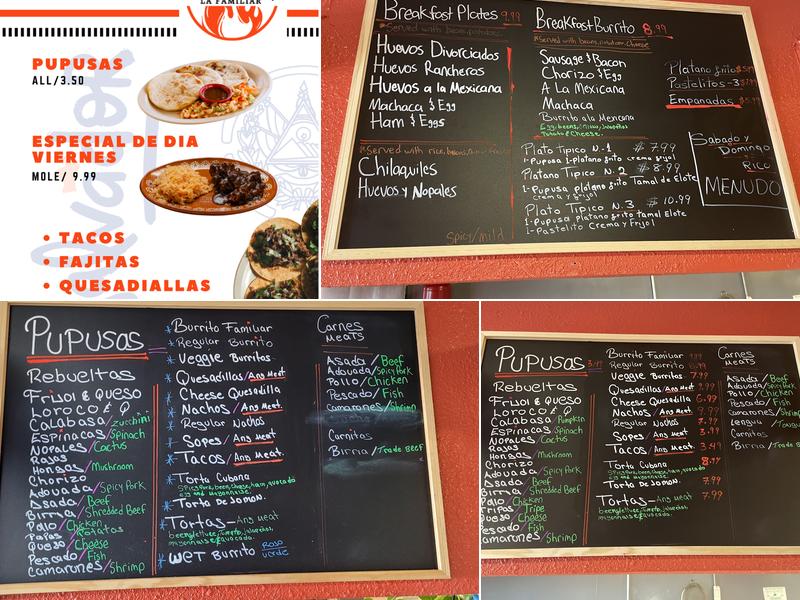 LA FAMILIAR
PUPUSAS
ALL/3.50
ESPECIAL DE DIA
VIERNES
MOLE/ 9.99
• TACOS
• FAJITAS
• QUESADIALLAS
Breakfast Plates 9.99
*Served with beans, potatoes
Huevos Divorciados
Huevos Rancheros
Huevos a la Mexicana
Machaca & Egg
Ham & Eggs
*Served with rice, beans,
Chilaquiles
Huevos y Nopales
Spicy/mild
Breakfast Burrito 8.99
*Served with beans, potatoes, cheese
Sausage & Bacon
Chorizo & Egg
A La Mexicana
Machaca
Burrito a la Mexicana
Egg, beens, Onion, Jalapeños
Tomato & Cheese.
Plato Tipico N.1 $7.99
1-Pupusa 1-platano frito crema frijol
Platano Tipico N.2 $8.99
1-Pupusa platano frito Tamal de Elote
crema y frijol
Plato Tipico N.3 $10.99
1-Pupusa platano frito tamal Elote
1-Pastelito Crema y Frijol
Platano frito
Pastelitos-3
Empanadas
Sabado y
Domingo
Rico
MENUDO
Pupusas
Rebueltas
Frijol & Queso
Loroco & Q
Calabasa/zucchini
Espinacas/Spinach
Nopales/Cactus
Rajas
Hongos/Mushroom
Chorizo
Adovada/Spicy Pork
Asada/Beef
Birria/Shredded Beef
Pollo/Chicken
Papas/Potatos
Queso/Cheese
Pescado/Fish
Camarones/Shrimp
*Burrito Familiar
*Regular Burrito
*Veggie Burritos
*Quesadillas/Any Meet
*Cheese Quesadilla
*Nachos/Any Meat.
*Regular Nachos
*Sopes/Any Meat
*Tacos/Any Meat.
*Torta Cubana
Spicy Pork, been, cheese, ham, avocado
egg and mayonnaise.
*Torta De Jamon.
*Tortas-Any meat
beens, lettuce, tomato, jalapeños,
mayonnaise & avocado.
*Wet Burrito Rojo
verde
Carnes
Meats
Asada/Beef
Adovada/Spicy Pork
Pollo/Chicken
Pescado/Fish
Camarones/Shrimp
Carnitas
Birria/Trade Beef
Pupusas 3.49
Rebueltas
Frijol & Queso
Loroco & Q
Calabasa/Pumpkin
Espinacas/Spinach
Nopales/Cactus
Rajas
Hongos/Mushroom
Chorizo
Adovada/Spicy Pork
Asada/Beef
Birria/Shredded Beef
Pollo/Chicken
Tripas/Tripe
Queso/Cheese
Pescado/Fish
Camarones/Shrimp
Burrito Familiar 9.99
Regular Burrito 8.99
Veggie Burritos 7.99
Quesadillas/Any Meet 9.99
Cheese Quesadilla 6.99
Nachos/Any Meat 9.99
Regular Nachos 7.99
Sopes/Any Meat 3.99
Tacos/Any Meat. 3.49
Torta Cubana 8.99
Spicy Pork, been, cheese, ham, avocado
egg and mayonnaise.
Torta De Jamon. 7.99
Tortas-Any meat 7.99
beens, lettuce, tomato, jalapeños,
mayonnaise & avocado.
Carnes
Meats
Asada/Beef
Adovada/Spicy Pork
Pollo/Chicken
Pescado/Fish
Camarones/Shrimp
Lengua/
Carnitas
Birria/Trade Beef